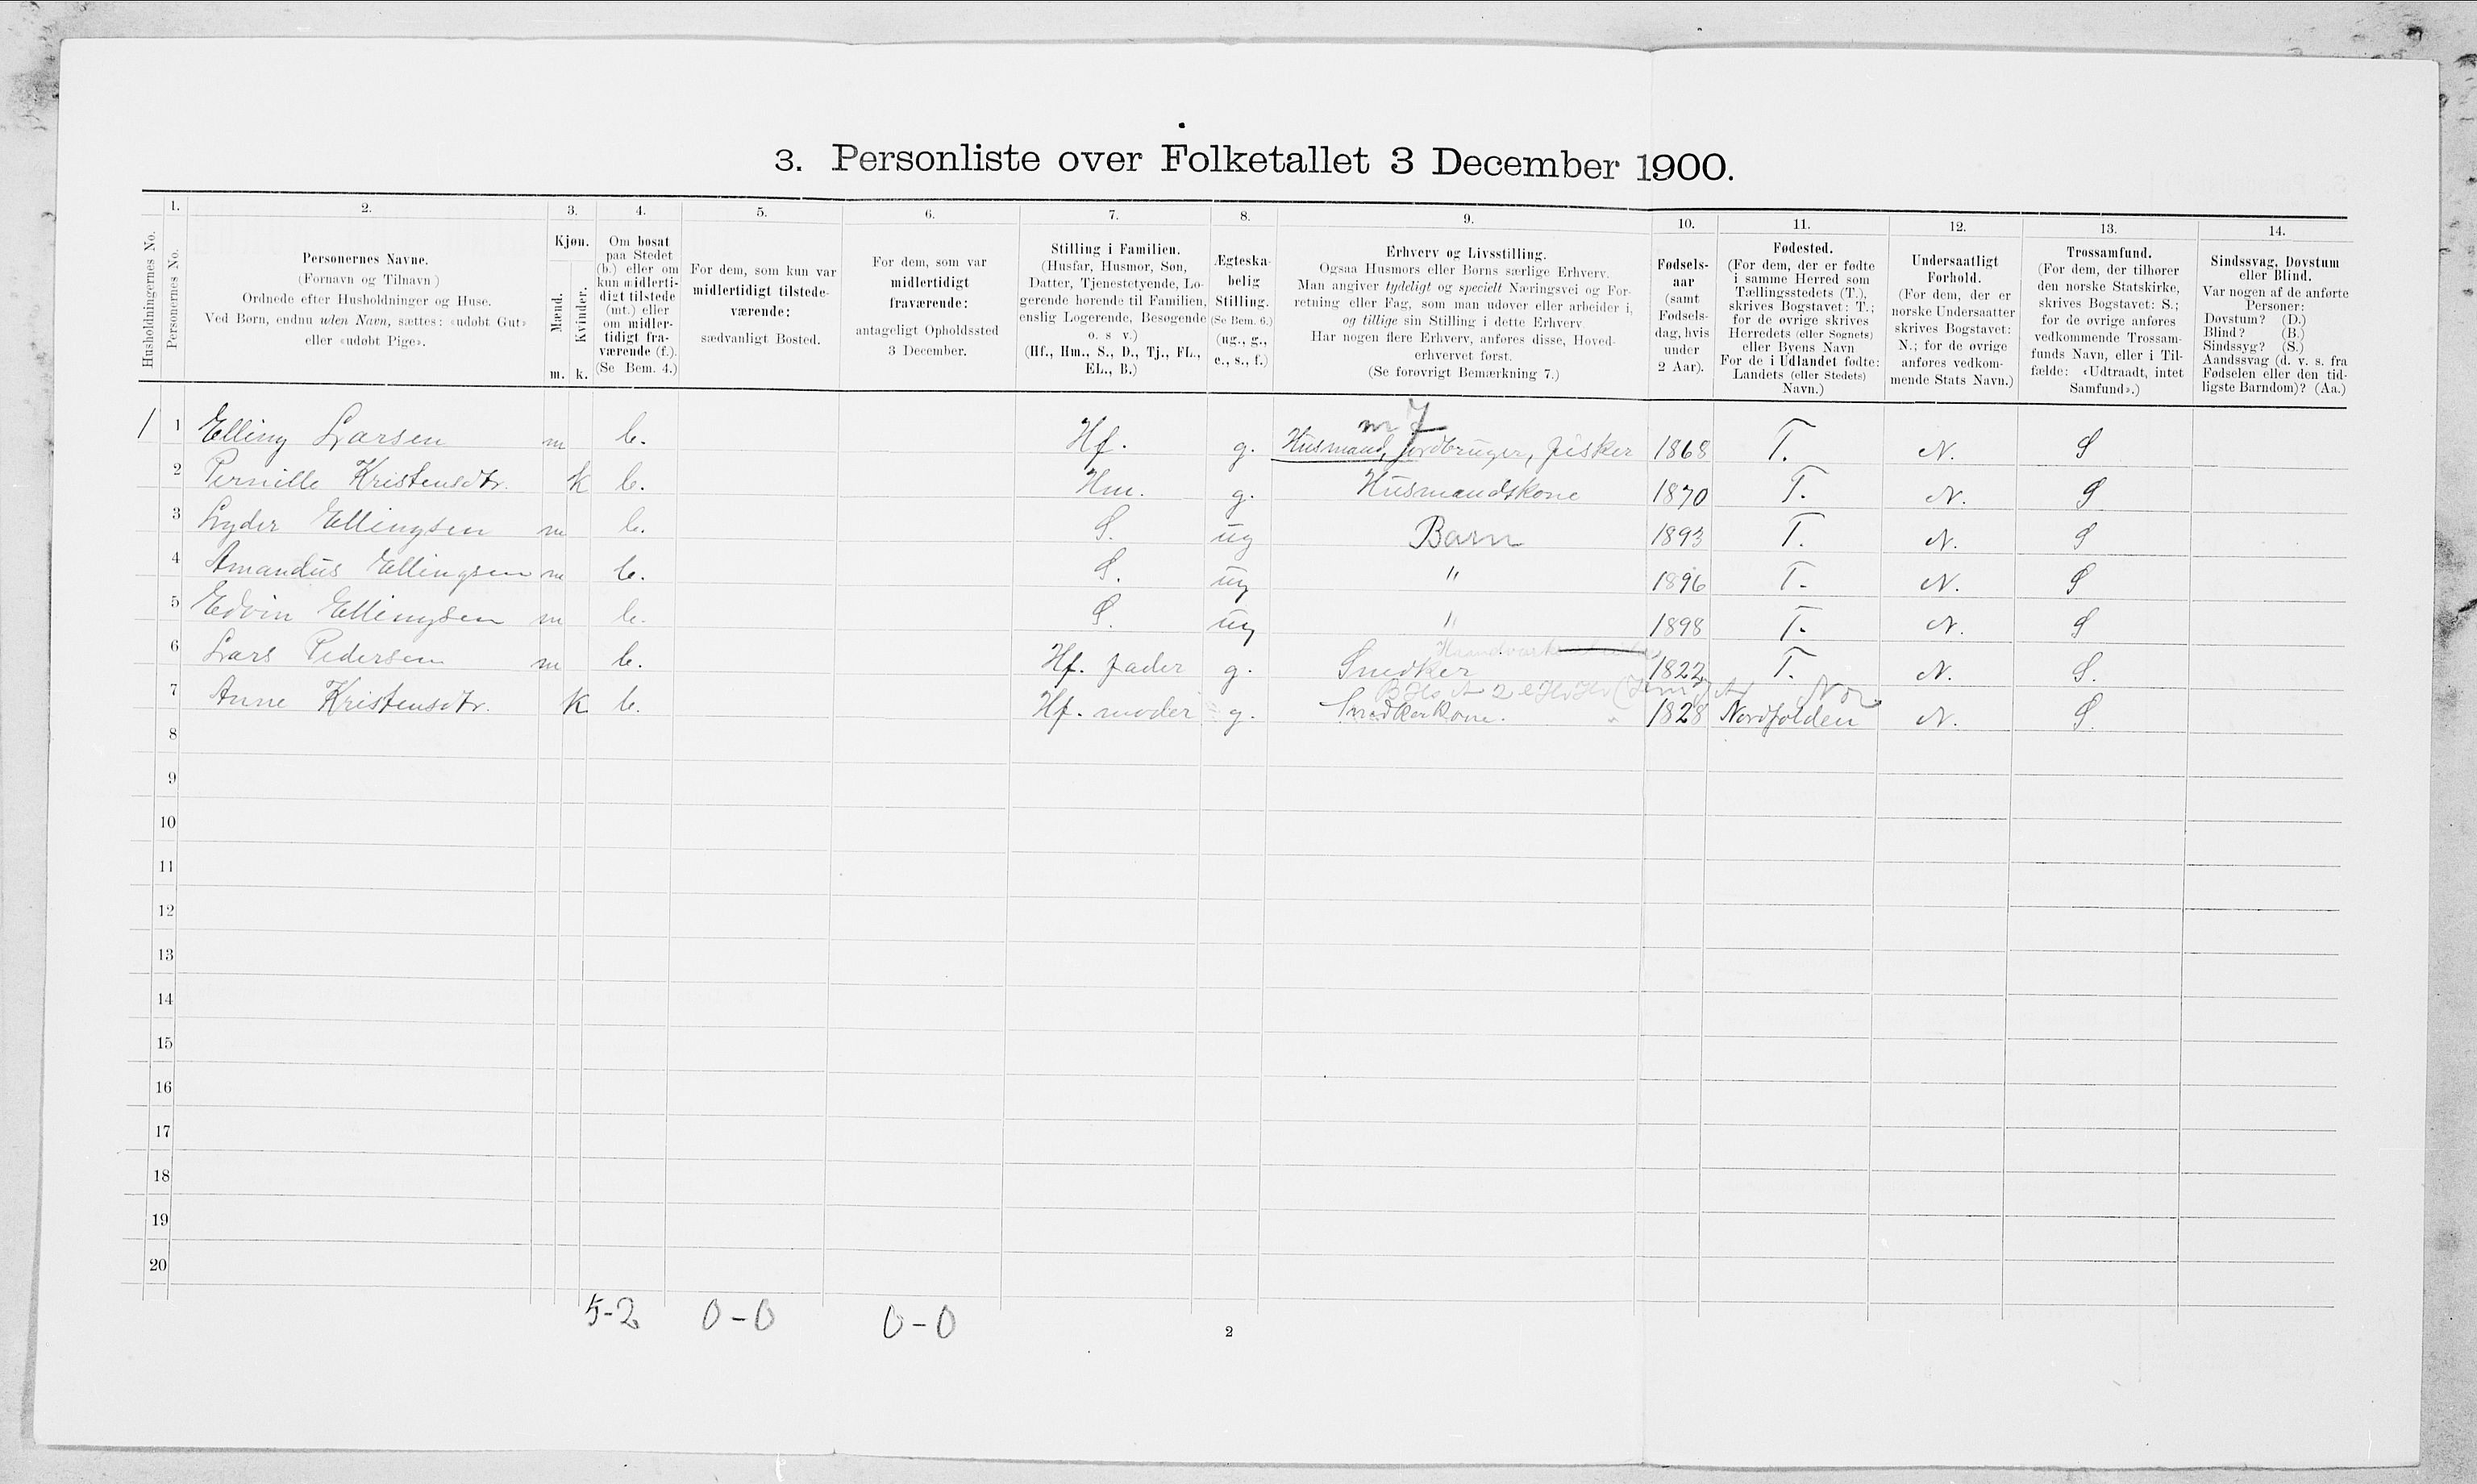 3. Personliste over Folketallet 3 December 1900.
Husholdningernes No.
1.
Personernes No.
2.
Personernes Navne.
(Fornavn og Tilnavn)
Ordnede efter Husholdninger og Huse.
Ved Børn, endnu uden Navn, sættes: «udøbt Gut»
eller «udøbt Pige».
3.
Kjøn.
Mænd.
Kvinder.
m. k.
4.
Om bosat
paa Stedet
(b.) eller om
kun midlerti-
digt tilstede
(mt.) eller
om midler-
tidigt fra-
værende (f.).
(Se Bem. 4.)
5.
For dem, som kun var
midlertidigt tilstede-
værende:
sædvanligt Bosted.
6.
For dem, som var
midlertidigt
fraværende:
antageligt Opholdssted
3 December.
7.
Stilling i Familien.
(Husfar, Husmor, Søn,
Datter, Tjenestetyende, Lo-
gerende hørende til Familien,
enslig Logerende, Besøgende
o. s v.)
(Hf., Hm., S., D., Tj., FL.,
EL., B.)
8.
Ægteska-
belig
Stilling.
(Se Bem. 6.)
(ug., g.,
e., s., f.)
9.
Erhverv og Livsstilling.
Ogsaa Husmors eller Børns særlige Erhverv.
Man angiver tydeligt og specielt Næringsvei og For-
retning eller Fag, som man udøver eller arbeider i,
og tillige sin Stilling i dette Erhverv.
Har nogen flere Erhverv, anføres disse, Hoved-
erhvervet først.
(Se forøvrigt Bemærkning 7.)
10.
Fødsels-
aar
(samt
Fødsels-
dag, hvis
under
2 Aar).
11.
Fødested.
(For dem, der er fødte
i samme Herred som
Tællingsstedets (T.),
skrives Bogstavet: T.;
for de øvrige skrives
Herredets (eller Sognets)
eller Byens Navn
For de i Udlandet fødte:
Landets (eller Stedets)
Navn.)
12.
Undersaatligt
Forhold.
(For dem, der er
norske Undersaatter
skrives Bogstavet:
N.; for de øvrige
anføres vedkom-
mende Stats Navn.)
13.
Trossamfund.
(For dem, der tilhører
den norske Statskirke,
skrives Bogstavet: S.;
for de øvrige anføres
vedkommende Trossam-
funds Navn, eller i Til-
fælde: «Udtraadt, intet
Samfund».)
14.
Sindssvag, Døvstum
eller Blind.
Var nogen af de anførte
Personer:
Døvstum? (D.)
Blind? (B.)
Sindssyg? (S.)
Aandssvag (d. v. s. fra
Fødselen eller den tid-
ligste Barndom)? (Aa.)
1 1 Elling Larsen m b. Hf. g. Husmand, jordbruger, fisker 1868 T. N. S
2 Pernille Kristensdtr. k b. Hm. g. Husmandskone 1870 T. N. S
3 Lyder Ellingsen m b. S. ug Barn 1893 T. N. S
4 Amandus Ellingsen m b. S. ug " 1896 T. N. S
5 Edvin Ellingsen m b. S. ug " 1898 T. N. S
6 Lars Pedersen m b. Hf. fader g. Snedker 1822 T. N. S.
7 Anne Kristensdtr. k b. Hf. moder g. Snedkerkone. 1828 Nordfolden N. S.
8
9
10
11
12
13
14
15
16
17
18
19
20
5-2 0-0 0-0
2